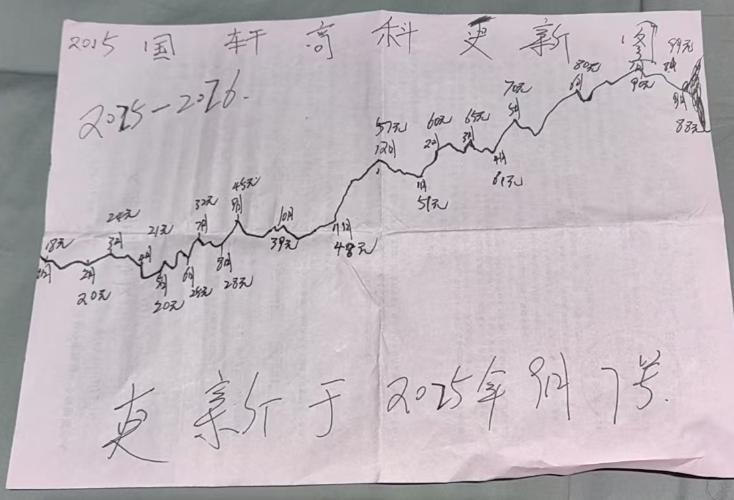 2015 国轩高科更新图
2025-2026.
18元 24元 21元 32元 45元 10月 57元 60元 65元 70元 80元 99元
1月 2月 3月 4月 5月 6月 7月 8月 9月 11月 12月 1月 2月 3月 4月 5月 6月 7月 8月 9月
20元 20元 25元 28元 39元 48元 51元 61元 90元 88元
更新于2025年9月7号.